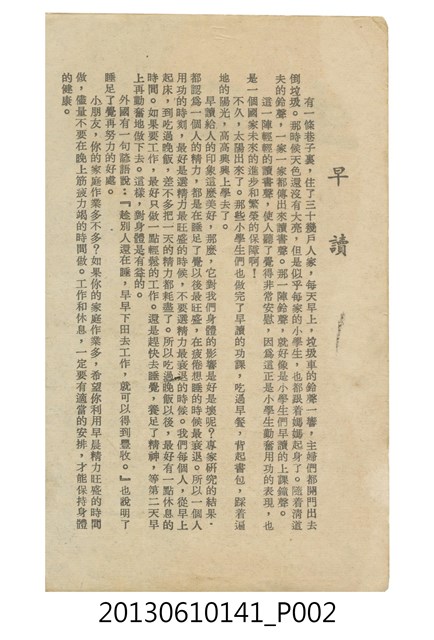 早讀
有一條巷子裏，住了三十幾戶人家，每天早上，垃圾車的鈴聲一響，主婦們都開門出去
倒垃圾。那時候天色還沒有大亮，但是似乎每家的小學生，也都跟着媽媽起身了。隨着清道
夫的鈴聲，一家一家都傳出來讀書聲。那一陣鈴聲，就好像是小學生們早讀的上課鐘聲。
這一陣輕輕的讀書聲，使人聽了覺得非常安慰，因爲這正是小學生勤奮用功的表現，也
是一個國家未來的進步和繁榮的保障啊！
不久，太陽出來了。那些小學生們也做完了早讀的功課，吃過早餐，背起書包，踩着遍
地的陽光，高高興興上學去了。
早讀給人的印象這麼美好，那麼，它對我們身體的影響是好是壞呢？專家研究的結果，
都認爲一個人的精力，都是在睡足了覺以後最旺盛，在疲倦想睡的時候最衰退。所以一個人
用功的時刻，最好是選精力最旺盛的時候，不要選精力最衰退的時候。我們每個人，從早上
起床，到吃過晚飯，差不多把一天的精力都耗盡了。所以吃過晚飯以後，最好有一點休息的
時間。如果要工作，最好只做一點輕鬆的工作。還是趕快去睡覺，養足了精神，等第二天早
上再勤奮地做下去。這樣，對身體是有益的。
外國有一句諺語說：『趁別人還在睡，早早下田去工作，就可以得到豐收。』也說明了
睡足了覺再努力的好處。
小朋友，你的家庭作業多不多？如果你的家庭作業多，希望你利用早晨精力旺盛的時間
做，儘量不要在晚上筋疲力竭的時間做。工作和休息，一定要有適當的安排，才能保持身體
的健康。
20130610141_P002